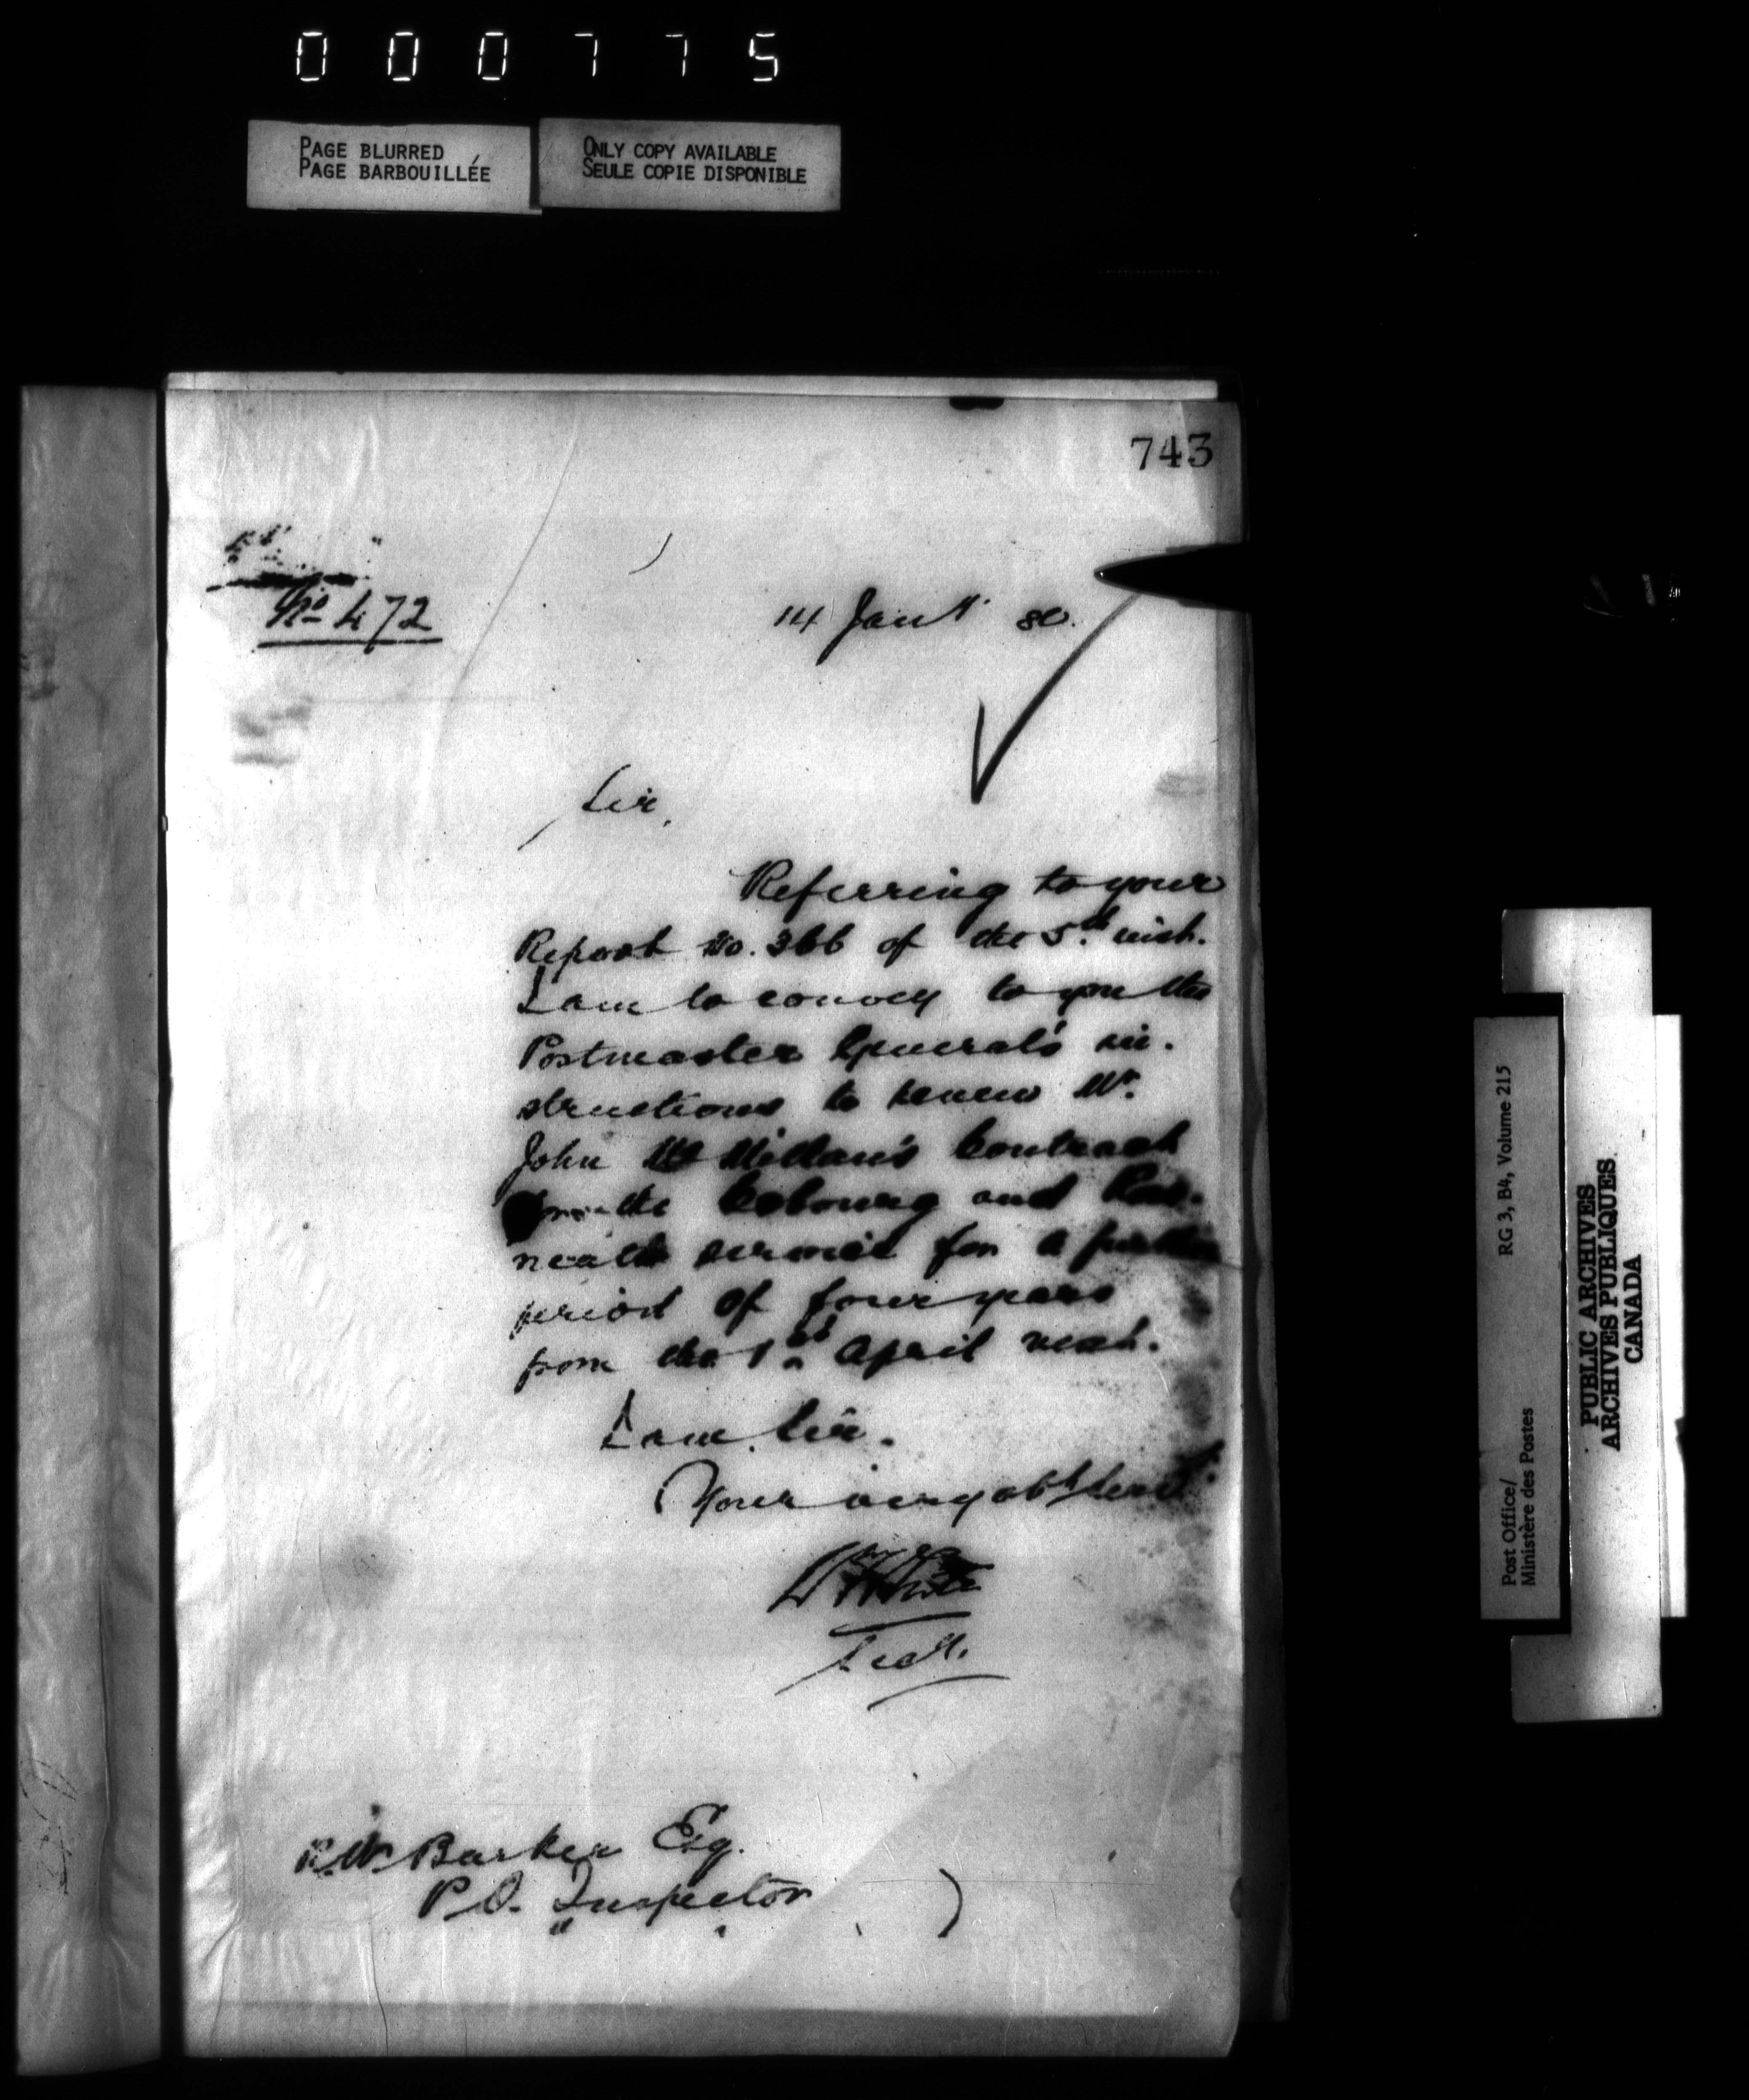 000775
PAGE BLURRED
PAGE BARBOUILLÉE
ONLY COPY AVAILABLE
SEULE COPIE DISPONIBLE
743
No 472
14 Jany 80.
Sir,
Referring to your
Report No. 366 of the 5th inst.
I am to convey to you the
Postmaster General's in-
structions to renew Mr.
John McMillan's Contract
the Cobourg and
service for a further
period of four years
from the 1st April next.
I am, Sir.
Your very obt Servt.
W White
Secy.
R.W. Barker Esq.
P.O. Inspector
RG 3, B4, Volume 215
Post Office/
Ministère des Postes
PUBLIC ARCHIVES
ARCHIVES PUBLIQUES
CANADA